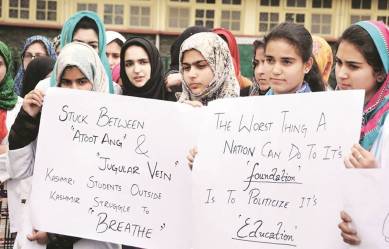 STUCK BETWEEN
"ATOOT ANG" &
"JUGULAR VEIN"
KASHMIRI STUDENTS OUTSIDE
KASHMIR STRUGGLE TO
"BREATHE"
THE WORST THING A
NATION CAN DO TO IT'S
"foundation"
IS TO POLITICIZE IT'S
"Education"